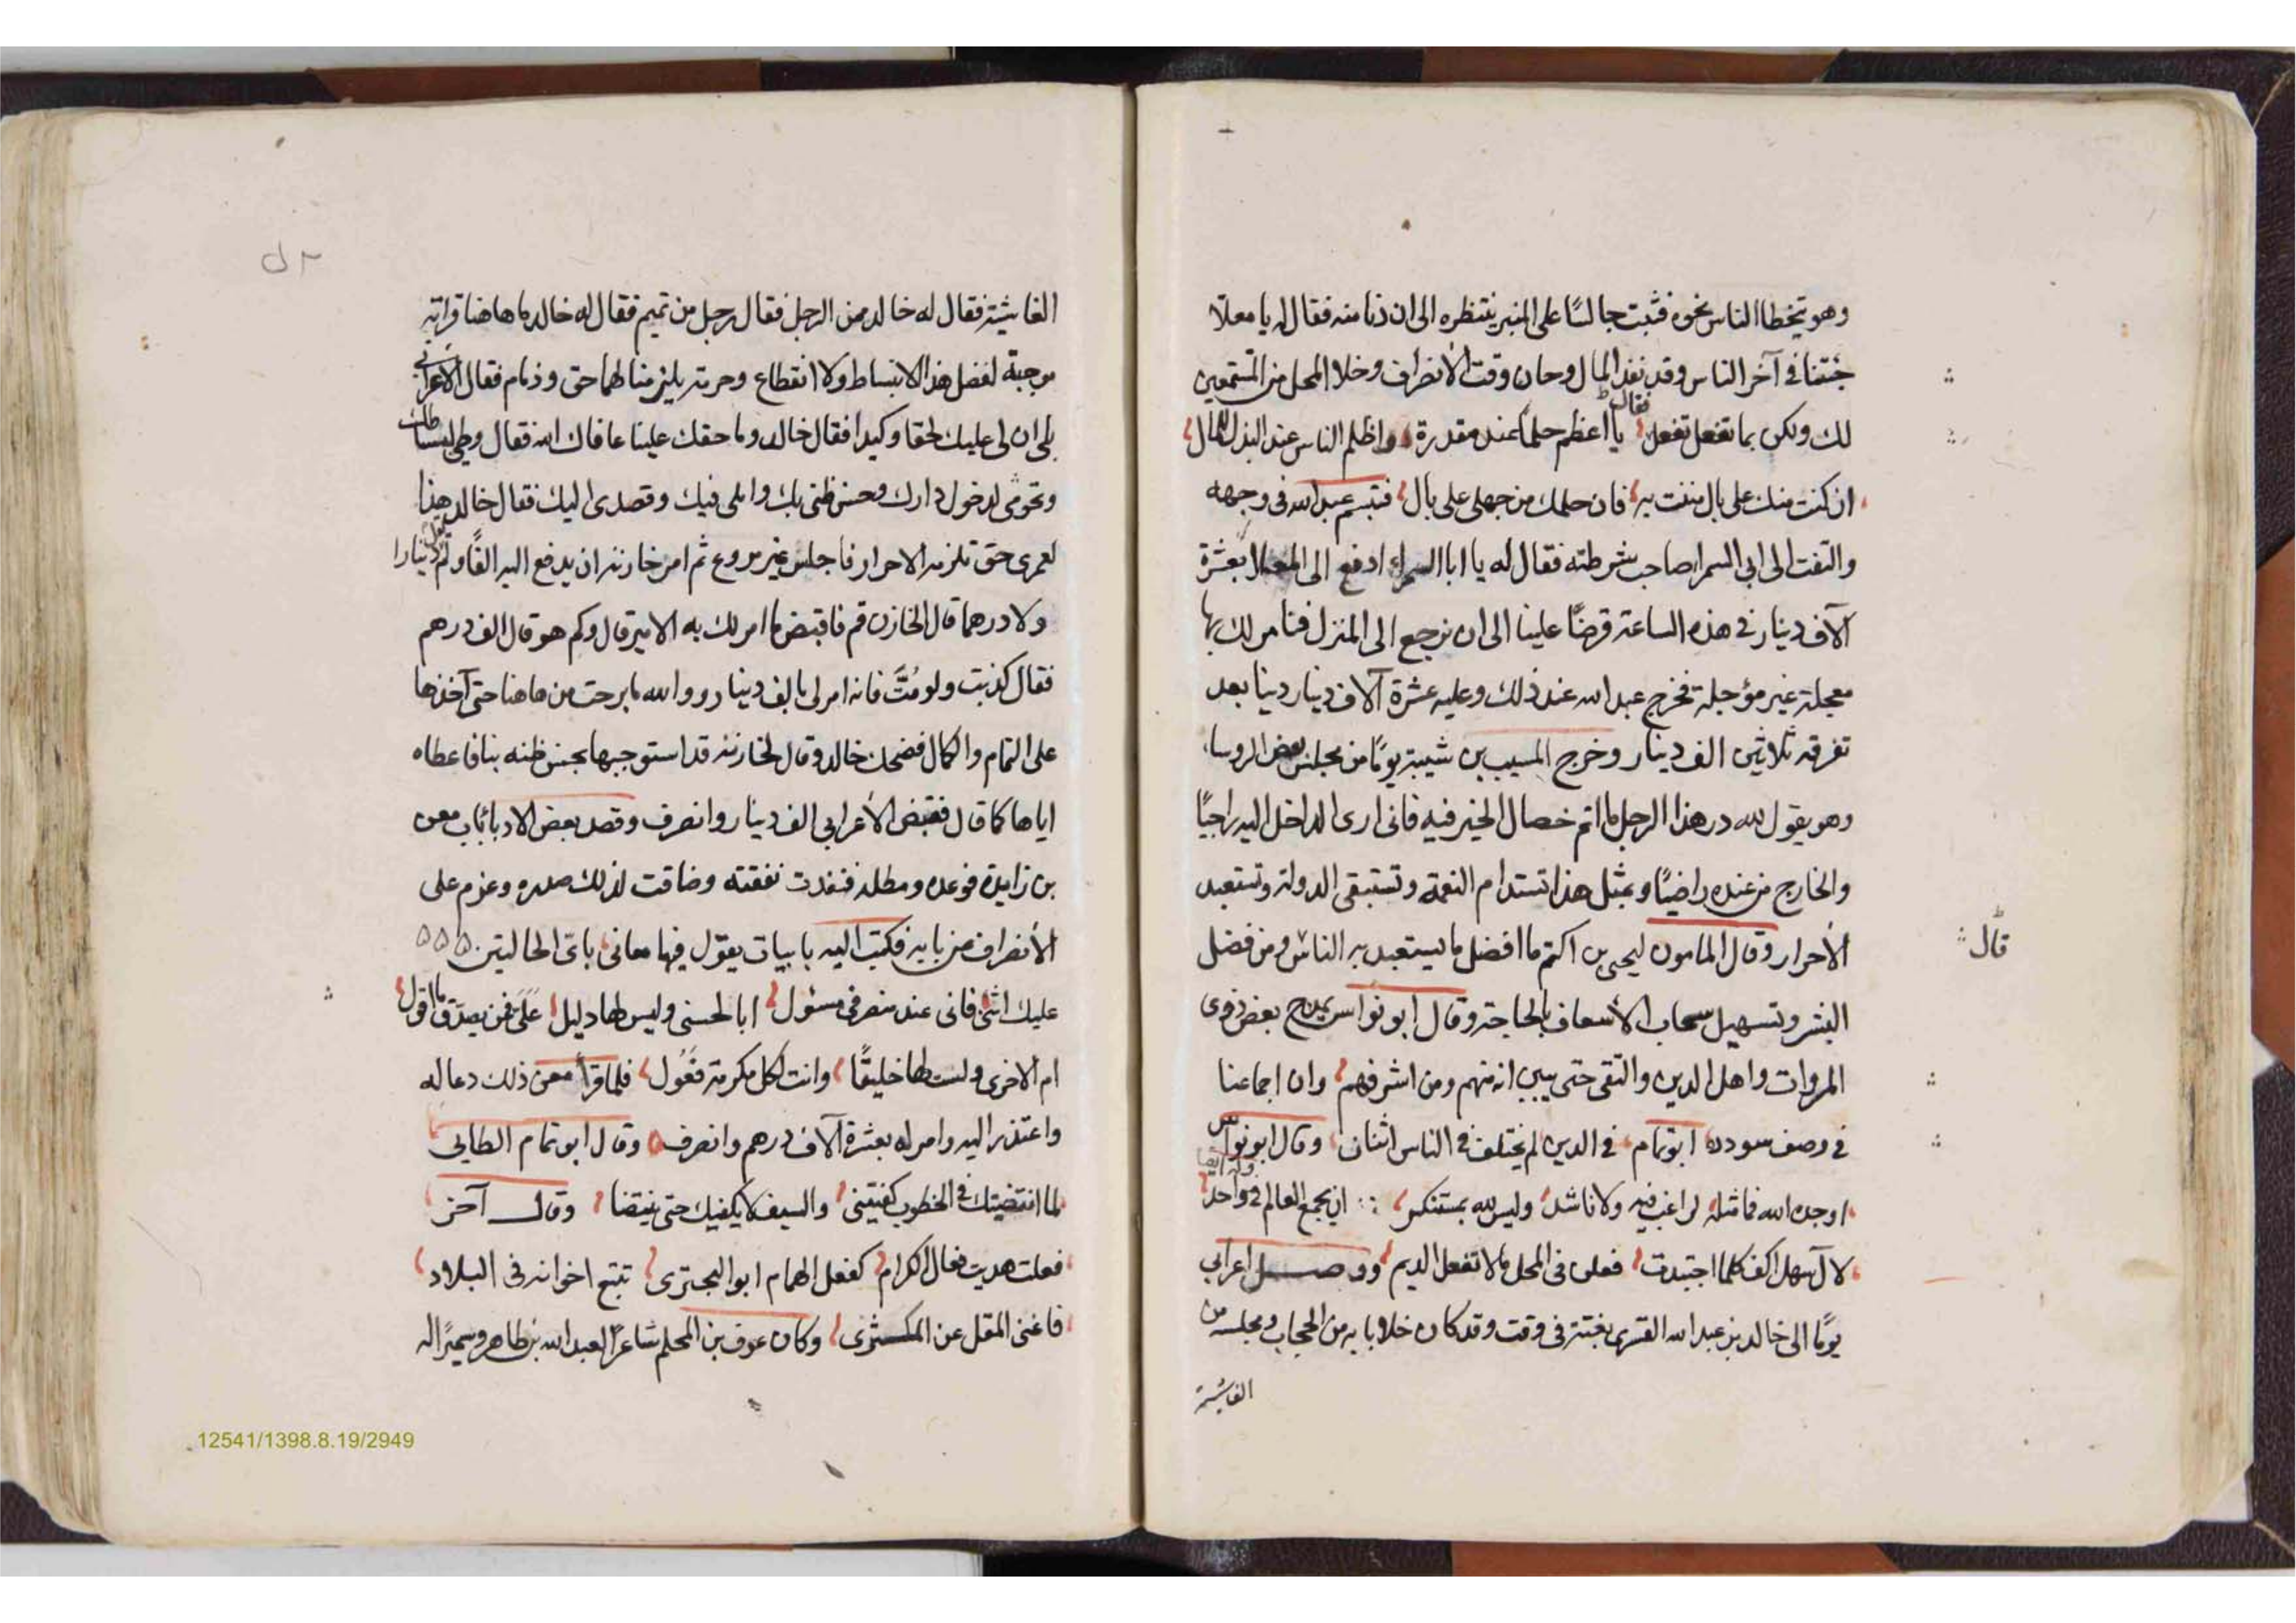 وهو يتخطا الناس نحوه فثبت جالسًا على المنبر ينتظره الى ان دنا منه فقال له يا معلا
جئتنا في آخر الناس وقد نفد المال وحان وقت الأنصراف وخلا المحل من المستمعين
لك ولكن بما تفعل تفعل فقال يا اعظم حلمًا عند مقدرة واظلم الناس عند البذل للمال
ان كنت منك على بال مننت به فان حلمك من جهلى على بال فتبسم عبد الله فى وجهه
والتفت الى ابي السمرا صاحب شرطته فقال له يا ابا السمراء ادفع الى المعلا بعشرة
آلاف دينار في هذه الساعة قرضًا علينا الى ان نرجع الى المنزل فنامر لك بها
معجلة غير مؤجلة فخرج عبد الله عند ذلك وعليه عشرة آلاف دينار دينا بعد
تفرقه ثلاثين الف دينار وخرج المسيب بن شيبة يومًا من مجلس بعض الروسا
وهو يقول لله در هذا الرجل ما اتم خصال الخير فيه فانى ارى الداخل اليه راجيًا
والخارج من عنده راضيًا وبمثل هذا تستدام النعمة وتستبقى الدولة وتستعبد
الأحرار وقال المامون ليحيى بن اكتم ما افضل ما يستعبد به الناس ومن فضل
قال
البشر وتسهيل سحاب الأسعاف بالحاجة وقال ابو نواس يمدح بعض ذوى
المروات واهل الدين والتقى حتى يبين انه منهم ومن اشرفهم وان اجماعنا
في وصف سودده ابو تمام في الدين لم يختلف في الناس اثنان وقال ابو نواس
اوجده الله فما مثله لراغب فيه ولا ناشد وليس لله بمستنكر وله ايضا ان يجمع العالم في واحد
لآل سهل اكف كلما اجتديت فعلن فى المحل ما لا تفعل الديم ووصل اعرابي
يومًا الى خالد بن عبد الله القسرى بغتة فى وقت وقد كان خلا بابه من الحجاب ومجلسه من
الغاشية
الغاشية فقال له خالد ممن الرجل فقال رجل من تميم فقال له خالد ما هاهنا قرابة
موجبة لفضل هذا الانبساط ولا انقطاع وحرمة يلزمنا لهما حق وذمام فقال الأعرابي
بلى ان لى عليك لحقا وكيدا فقال خالد وما حقك علينا عافاك الله فقال وطي بساطك
وتحرمى لدخول دارك وحسن ظنى بك واملى فيك وقصدى اليك فقال خالد هذا
لعمرى حق تلزمه الاحرار فاجلس غير مروع ثم امر خازنه ان يدفع اليه الفًا ولم يقل دينارا
ولا درهما قال الخازن قم فاقبض ما امر لك به الامير قال وكم هو قال الف درهم
فقال كذبت ولو مُتَّ فانه امر لى بالف دينار ووالله ما برحت من هاهنا حتى آخذها
على التمام والكمال فضحك خالد وقال لخازنه قد استوجبها بحسن ظنه بنا فاعطاه
اياها كما قال فقبض الأعرابي الف دينار وانصرف وقصد بعض الادبا باب معن
بن زايدة فوعده ومطله فنفدت نفقته وضاقت لذلك صدره وعزم على
الأنصراف من بابه فكتب اليه بابيات يقول فيها معانى باىّ الحالتين
عليك اثنى فانى عند منصرفى مسئول ابا لحسنى وليس لها دليل عَلَىَّ فمن يصدّق ما اقول
ام الاخرى ولست لها خليقًا وانت لكل مكرمة فَعُول فلما قرأ معن ذلك دعا له
واعتذر اليه وامر له بعشرة آلاف درهم وانصرف وقال ابو تمام الطايى
لما انتضيتك فى الخطوب كفيتنى والسيف لا يكفيك حتى ينتضا وقال آخر
فعلت هديت فعال الكرام كفعل الهمام ابو البحترى تتبع اخوانه فى البلاد
فاغنى المقل عن المكسثرى وكان عوف بن المحلم شاعرًا لعبد الله بن طاهر وسميرًا له
12541/1398.8.19/2949